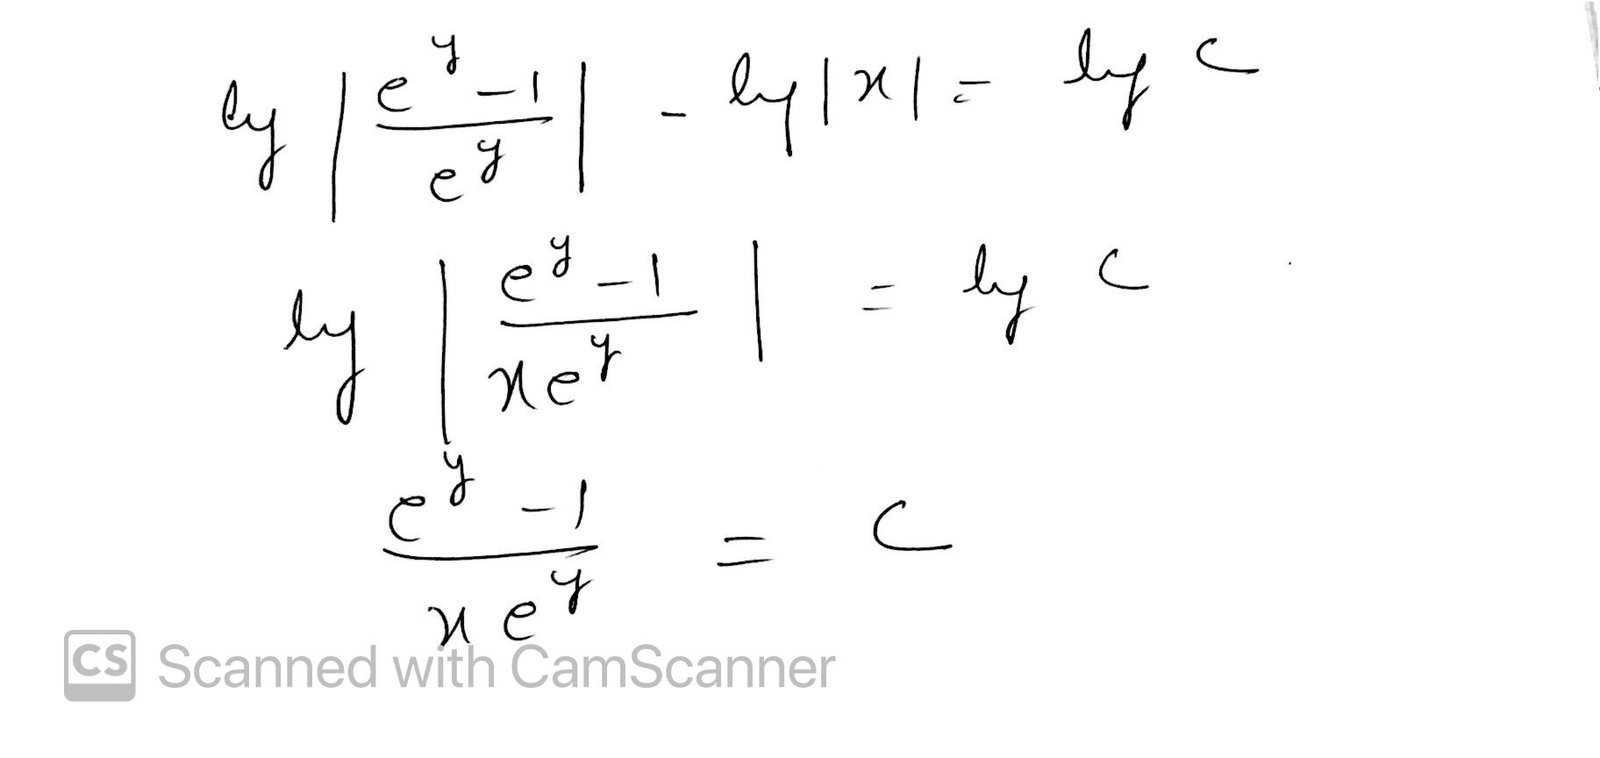 log | (e^y - 1)/(e^y) | - log |x| = log c
log | (e^y - 1)/(x e^y) | = log c
(e^y - 1)/(x e^y) = c
CS Scanned with CamScanner